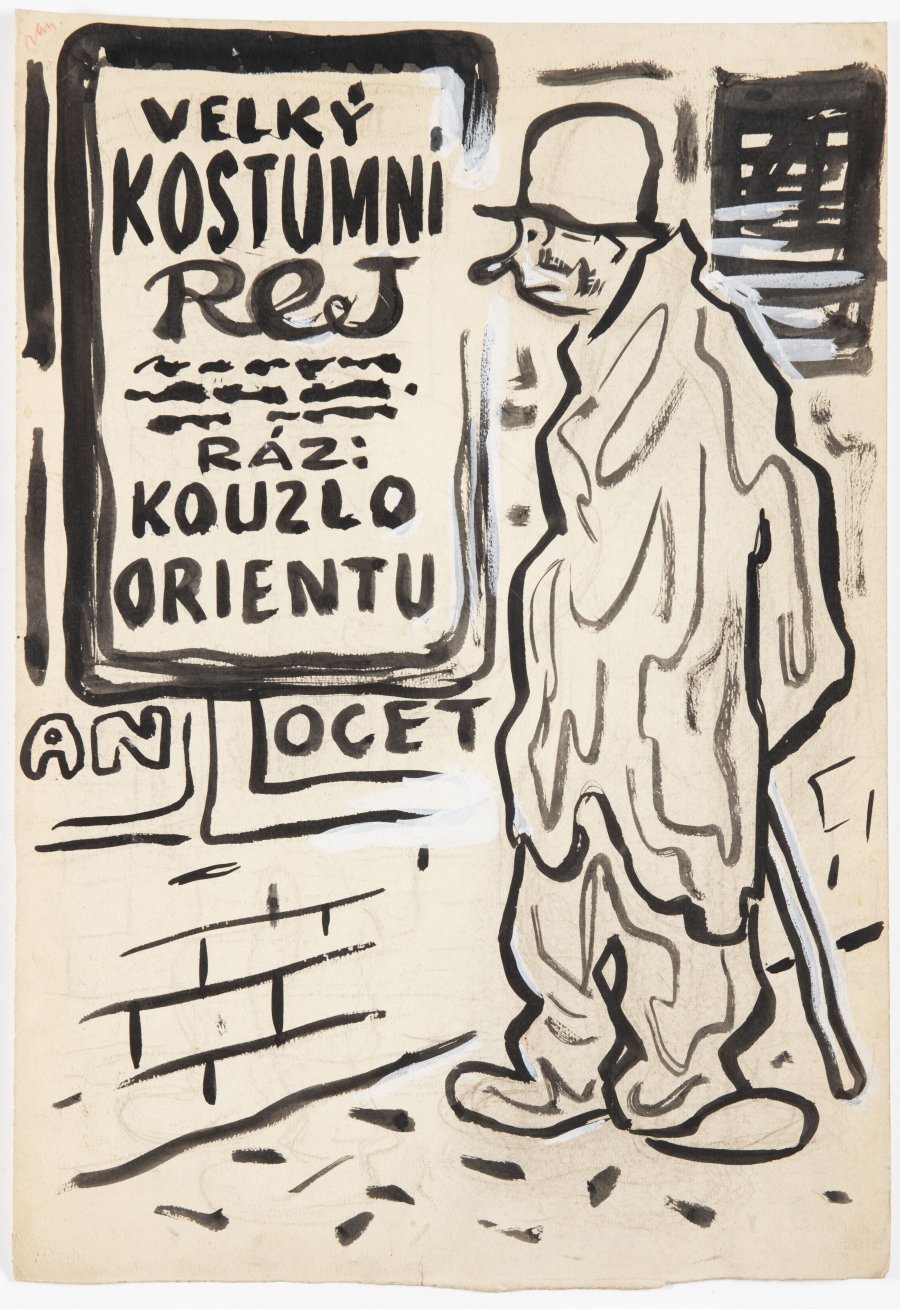 VELKÝ
KOSTUMNÍ
REJ
RÁZ:
KOUZLO
ORIENTU
AN
OCET